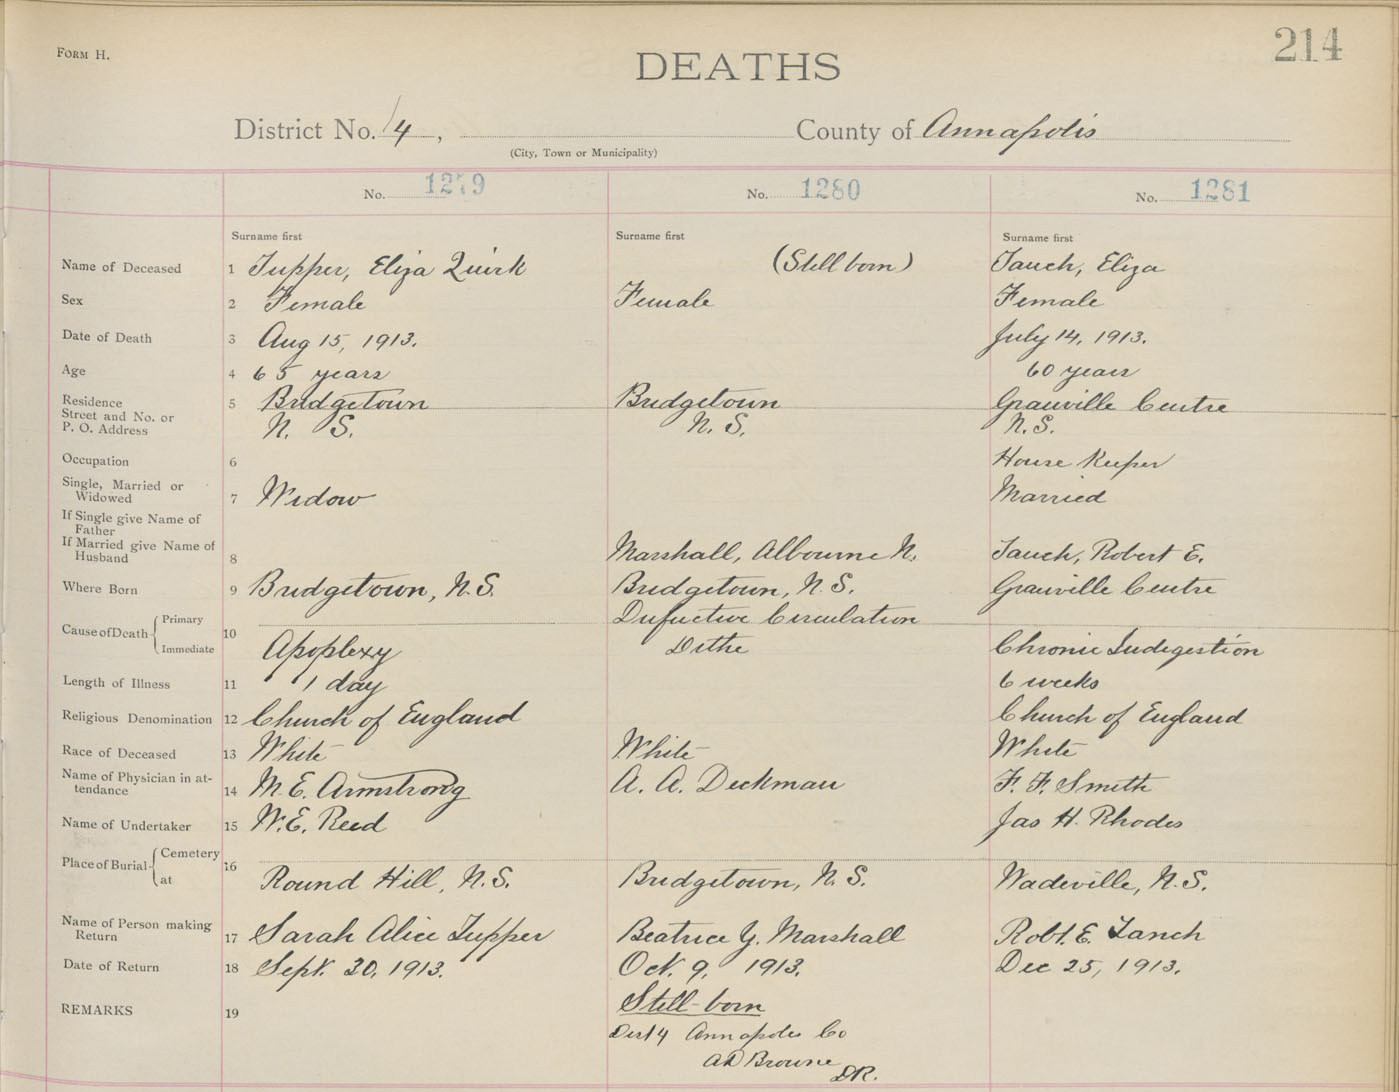 FORM H.
DEATHS
214
District No. 14, County of Annapolis
(City, Town or Municipality)
No. 1279 No. 1280 No. 1281
Surname first Surname first Surname first
Name of Deceased 1 Tupper, Eliza Quirk (Still born) Tanch, Eliza
Sex 2 Female Female Female
Date of Death 3 Aug 15, 1913. July 14, 1913.
Age 4 65 years 60 years
Residence 5 Bridgetown Bridgetown Granville Centre
Street and No. or
P. O. Address N. S. N. S. N. S.
Occupation 6 House Keeper
Single, Married or
Widowed 7 Widow Married
If Single give Name of
Father
If Married give Name of
Husband 8 Marshall, Albourne N. Tanch, Robert E.
Where Born 9 Bridgetown, N. S. Bridgetown, N. S. Granville Centre
Cause of Death Primary 10 Defective Circulation
Immediate Apoplexy Ditto Chronic Indigestion
Length of Illness 11 1 day 6 weeks
Religious Denomination 12 Church of England Church of England
Race of Deceased 13 White White White
Name of Physician in at-
tendance 14 M. E. Armstrong A. A. Deckman F. F. Smith
Name of Undertaker 15 W. E. Reed Jas H. Rhodes
Place of Burial Cemetery 16
at Round Hill, N. S. Bridgetown, N. S. Wadeville, N. S.
Name of Person making
Return 17 Sarah Alice Tupper Beatrice Y. Marshall Robt. E. Tanch
Date of Return 18 Sept. 30, 1913. Oct. 9, 1913. Dec 25, 1913.
REMARKS 19 Still-born
Dist 4 Annapolis Co
AD Browne
DR.